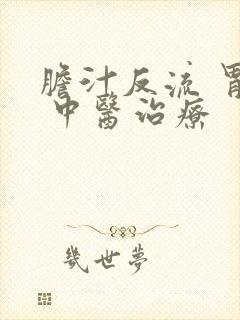 膽汁反流 胃
中醫治療
幾世夢